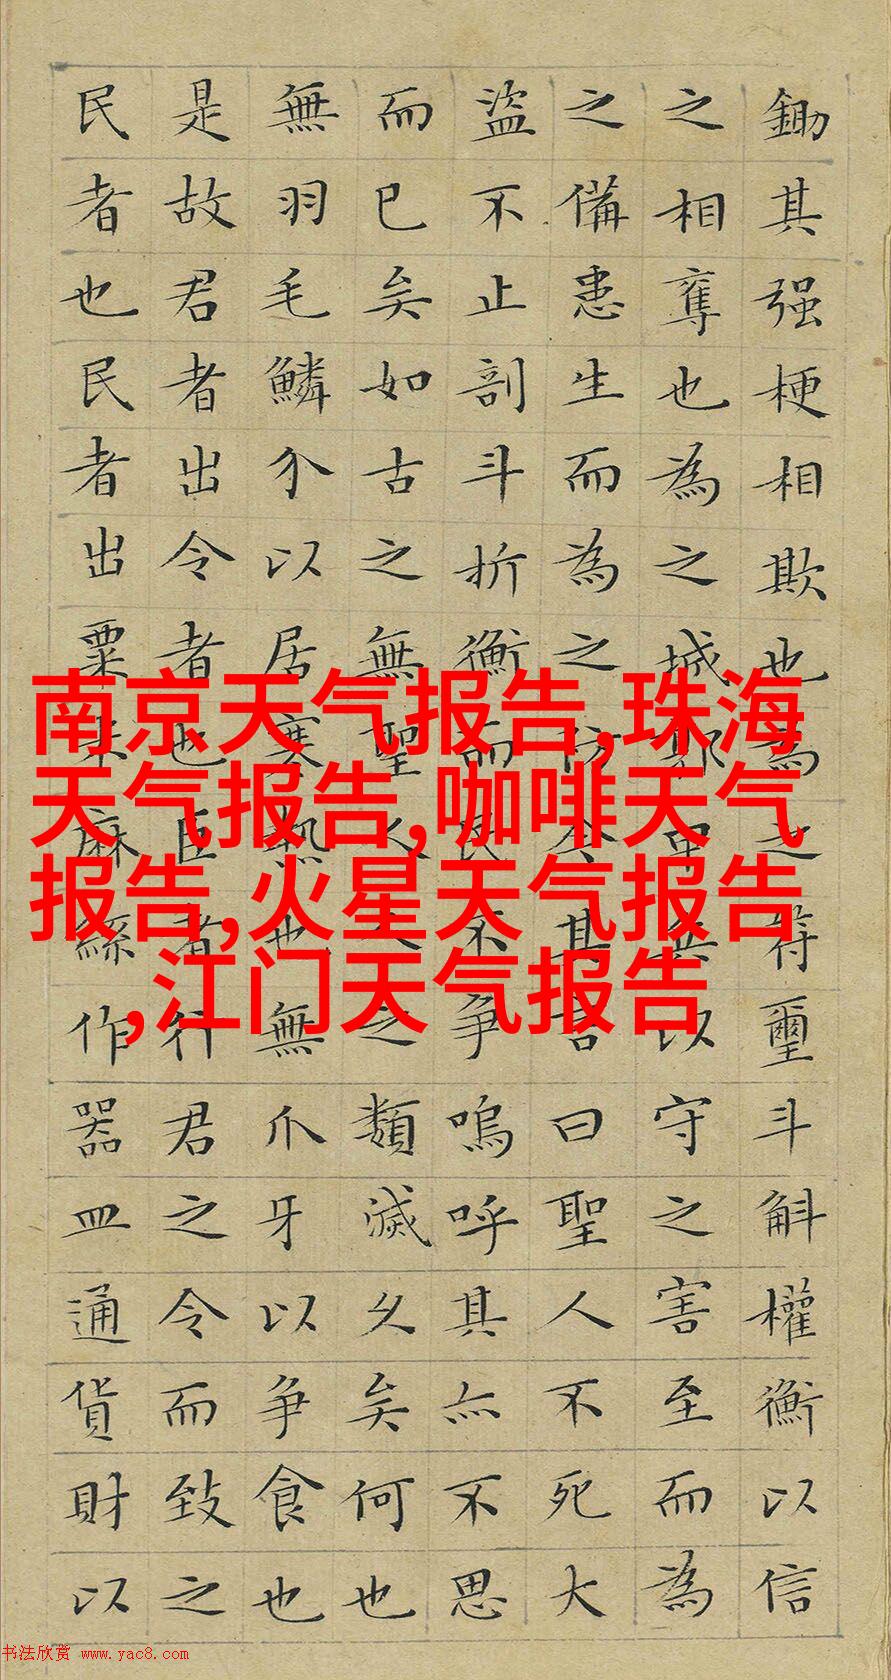 鋤其强梗相欺也為之符璽斗斛權衡以信
之相奪也為之城郭甲兵以守之害至而為
之備患生而為之防今其言曰聖人不死大
盜不止剖斗折衡而民不爭嗚呼其亦不思
而已矣如古之無聖人人之類滅久矣何也
無羽毛鱗介以居寒熱也無爪牙以爭食也
是故君者出令者也臣者行君之令而致之
民者也民者出粟米麻絲作器皿通貨財以
南京天气报告,珠海
天气报告,咖啡天气
报告,火星天气报告
,江门天气报告
书法欣赏 www.yac8.com